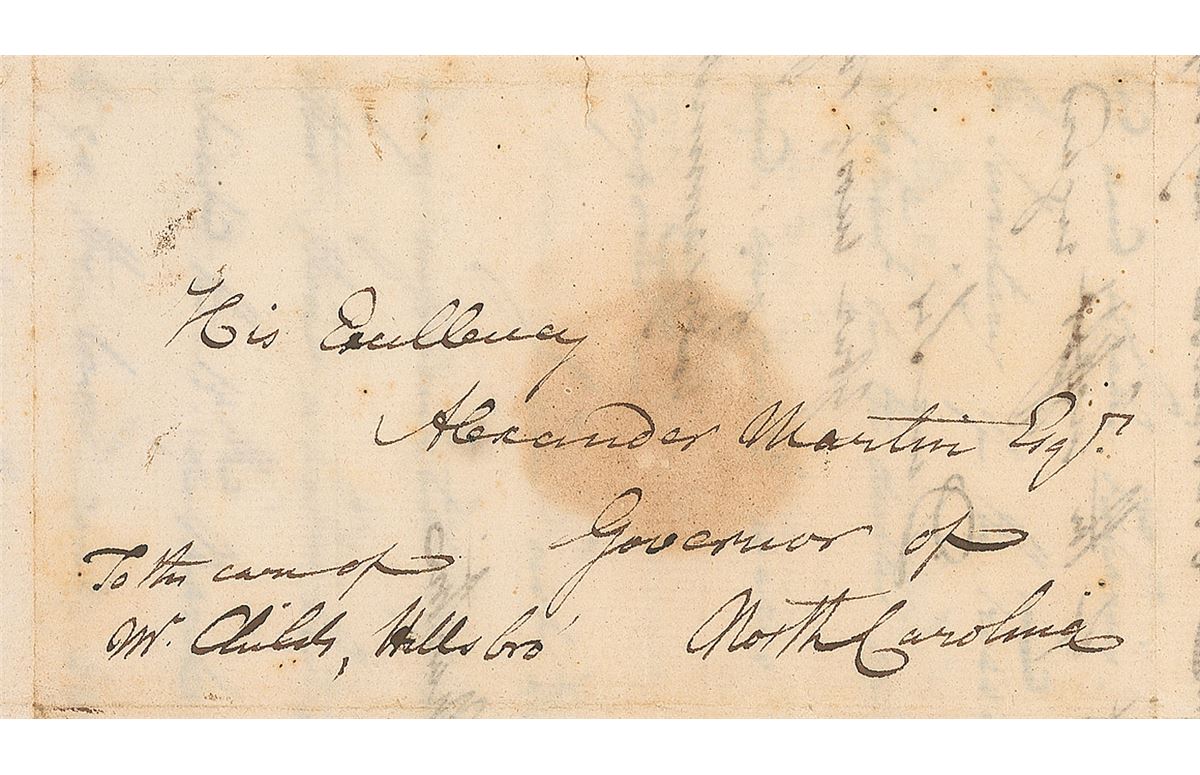 His Excellency
Alexander Martin Esqr.
Governor of
North Carolina
To the care of
Mr. Childs, Hillsbro'